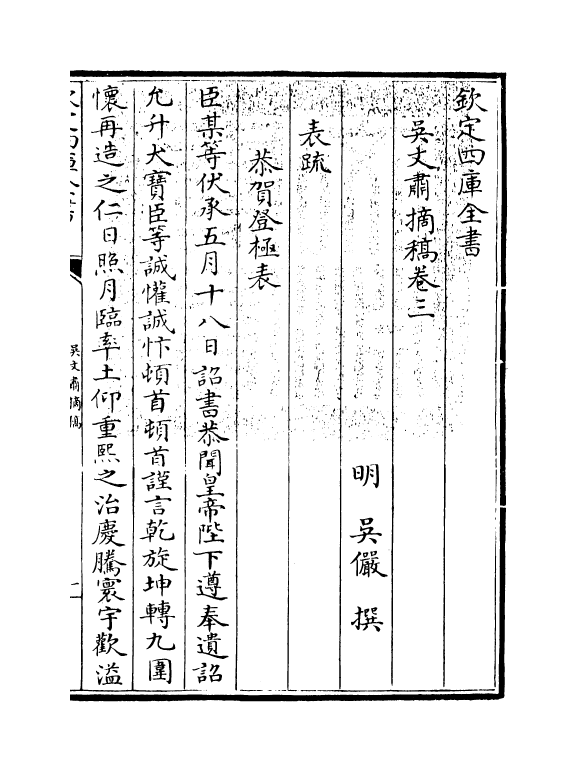 欽定四庫全書
吳文肅摘稿卷三
明 吳儼 撰
表疏
恭賀登極表
臣某等伏承五月十八日詔書恭聞皇帝陛下遵奉遺詔
允升大寶臣等誠懽誠忭頓首頓首謹言乾旋坤轉九圍
懷再造之仁日照月臨率土仰重熙之治慶騰寰宇歡溢
吳文肅摘稿